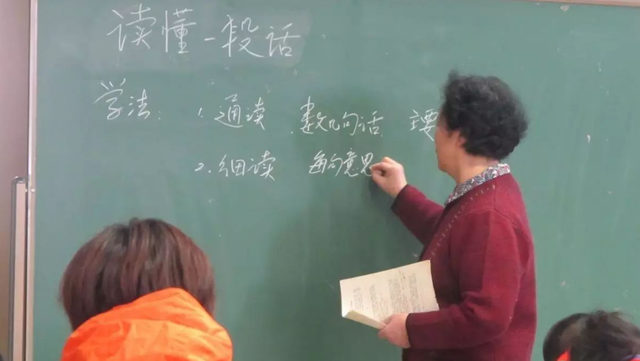 读懂一段话
学法: 1.通读 数几句话 主要
2.细读 每句意思